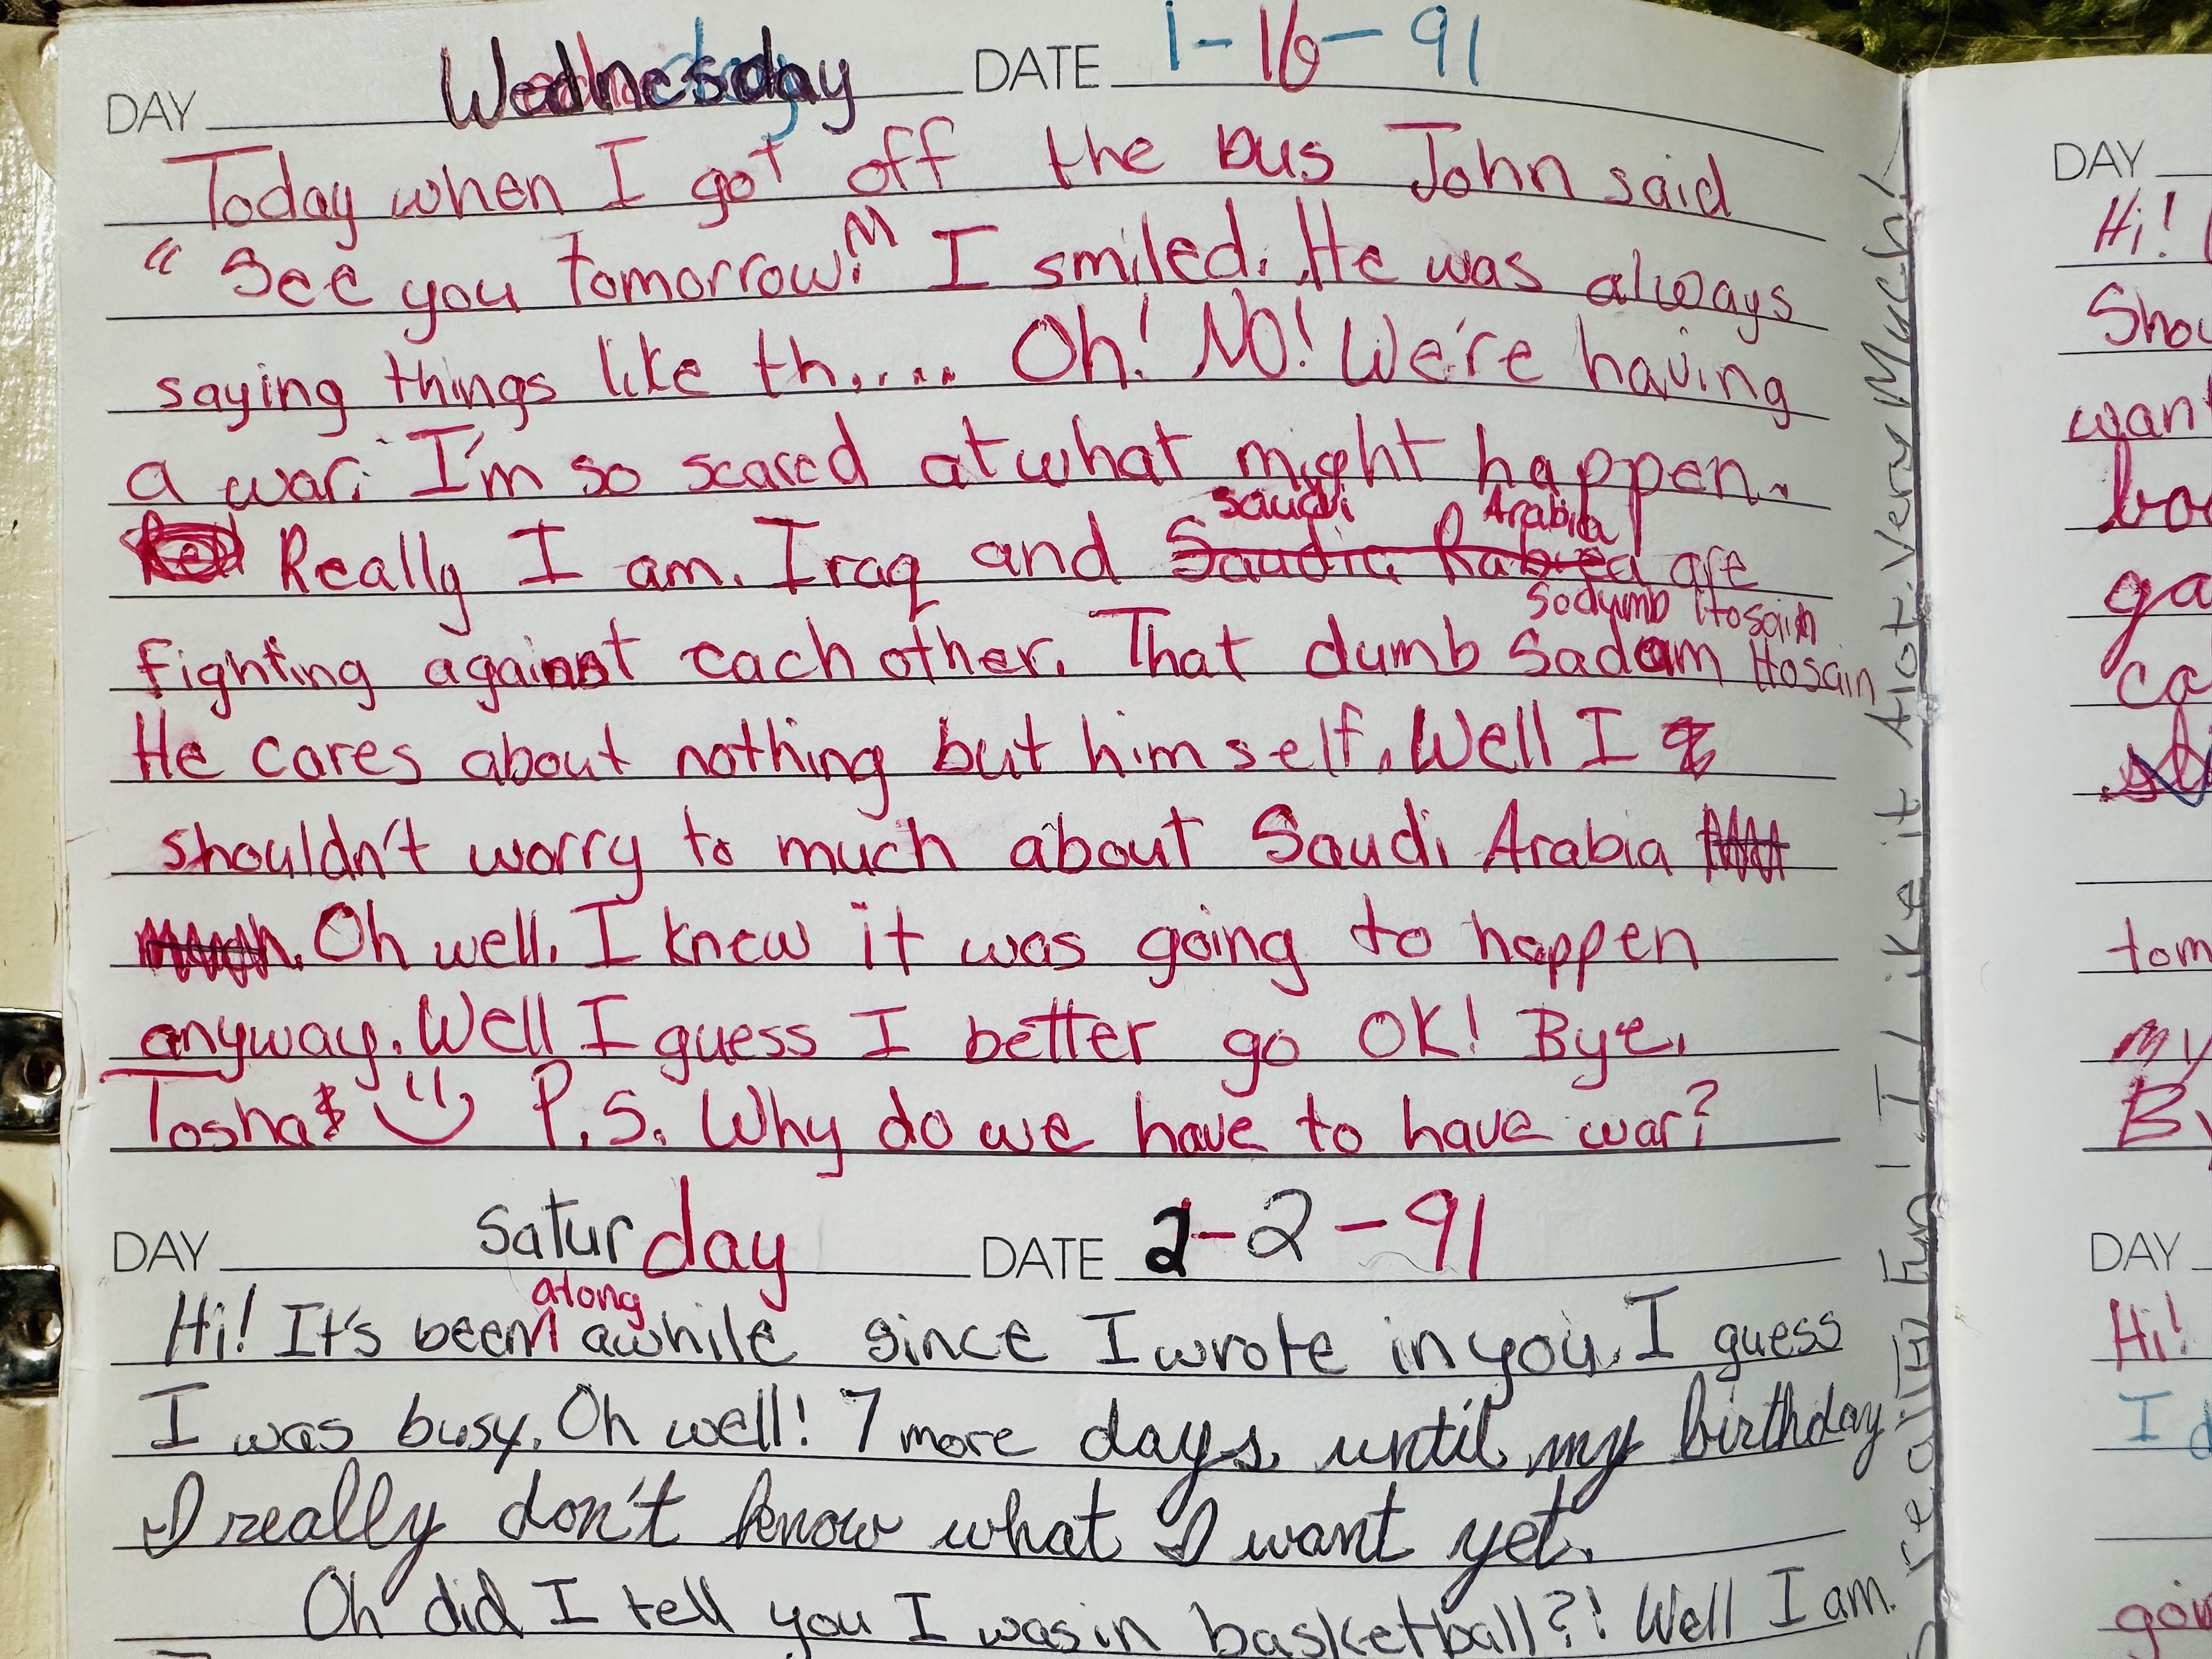 DAY Wednesday DATE 1-16-91
Today when I got off the bus John said
"See you tomorrow!" I smiled. He was always
saying things like th..... Oh! NO! We're having
a war. I'm so scared at what might happen.
Saudi Arabia
Really I am. Iraq and Saudia Rabiea are
Sodumb Hosain
fighting against each other. That dumb Sadam Hosain
He cares about nothing but himself. Well I
shouldn't worry to much about Saudi Arabia
much. Oh well. I knew it was going to happen
anyway. Well I guess I better go OK! Bye.
Tosha P.S. Why do we have to have war?
DAY Saturday DATE 2-2-91
along
Hi! It's been awhile since I wrote in you. I guess
I was busy. Oh well! 7 more days until my birthday
I really don't know what I want yet.
Oh did I tell you I was in basketball?! Well I am.
really Fun! I Like it Alot. Very Much!
DAY
Hi!
tom
my
DAY
Hi!
I d